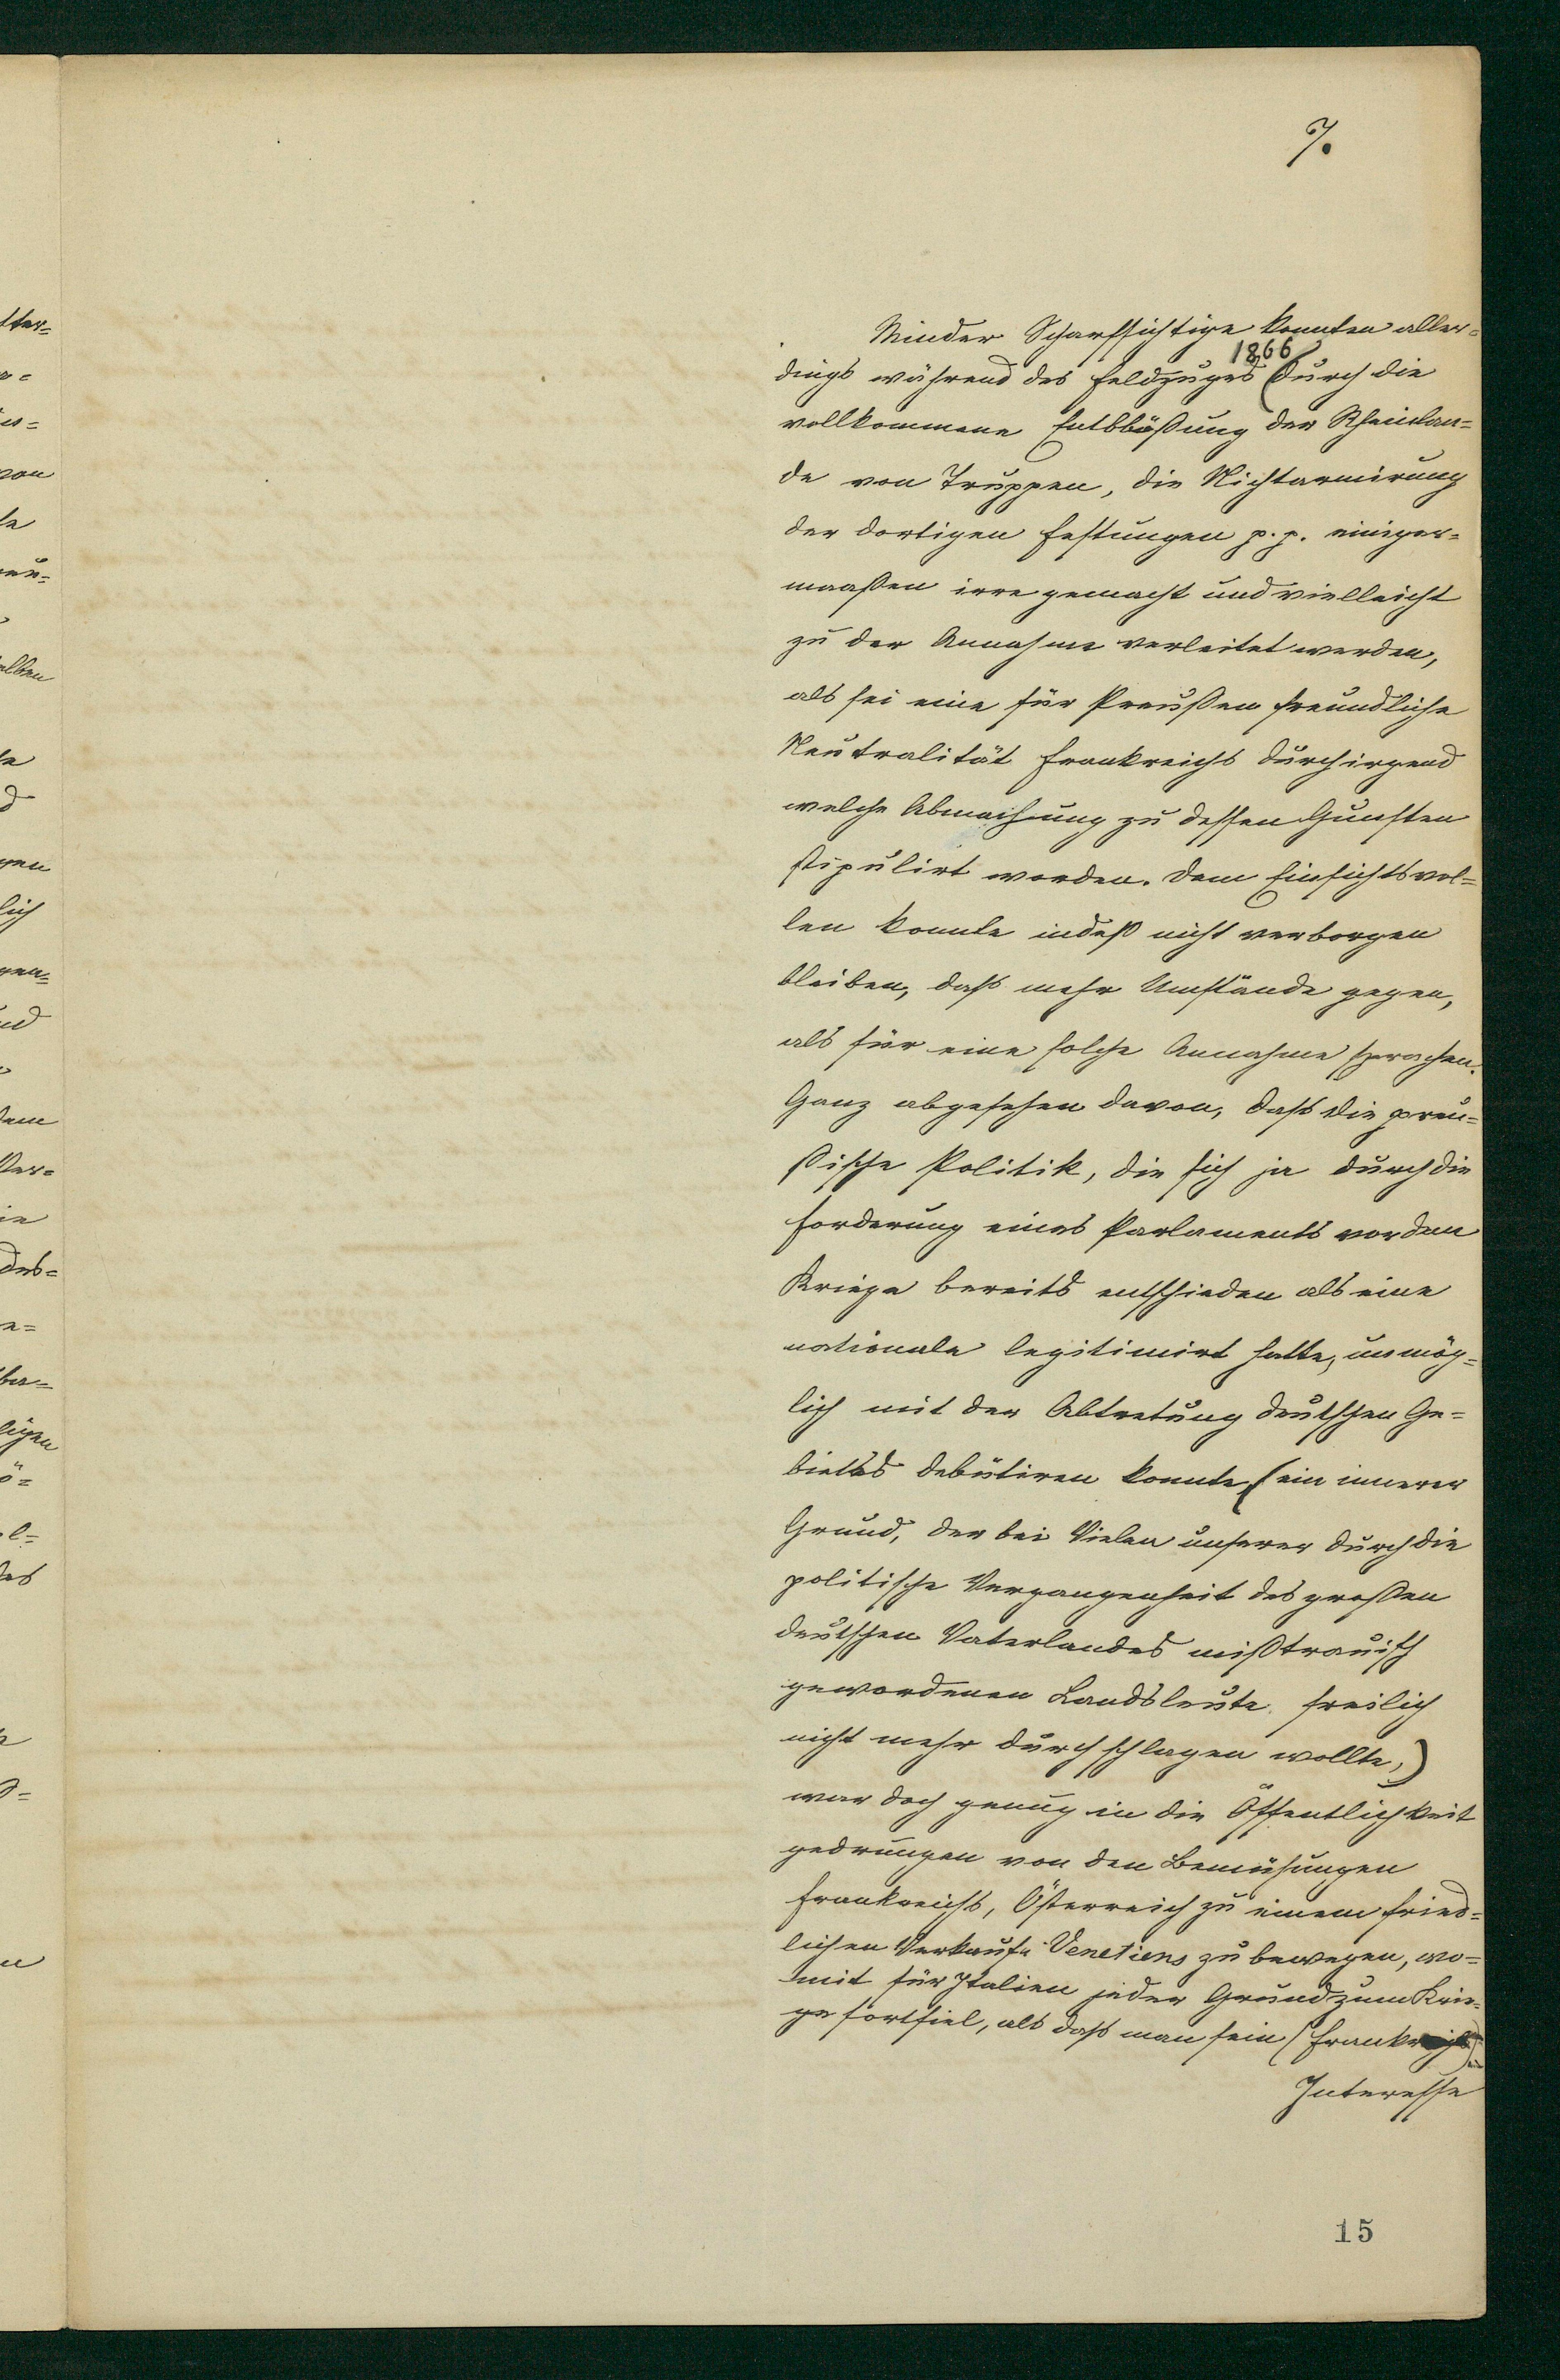 7.
Minder Scharfsichtige konnten aller=
dings während des Feldzuges 1866 durch die
vollkommene Entblößung der Rheinlan=
de von Truppen, die Nichtarmirung
der dortigen Festungen p. p. einiger=
maaßen irre gemacht und vielleicht
zu der Annahme verleitet werden,
als sei eine für Preußen freundliche
Neutralität Frankreichs durch irgend
welche Abmachung zu dessen Gunsten
stipulirt worden. Dem Einsichtsvol=
len konnte indeß nicht verborgen
bleiben, daß mehr Umstände gegen,
als für eine solche Annahme sprachen.
Ganz abgesehen davon, daß die preu=
ßische Politik, die sich ja durch die
Forderung eines Parlaments vor dem
Kriege bereits entschieden als eine
nationale legitimirt hatte, unmög=
lich mit der Abtretung deutschen Ge=
bietes debütiren konnte, (ein innerer
Grund, der bei Vielen unserer durch die
politische Vergangenheit des großen
deutschen Vaterlandes mißtrauisch
gewordenen Landsleute freilich
nicht mehr durchschlagen wollte,)
war doch genug in die Öffentlichkeit
gedrungen von den Bemühungen
Frankreichs, Österreich zu einem fried=
lichen Verkaufe Venetiens zu bewegen, wo=
mit für Italien jeder Grund zum Krie=
ge fortfiel, als daß man sein (Frankreichs)
Interesse
15
tter=
von
alben
gen
lich
gen=
dem
Ver=
des=
ligen
des